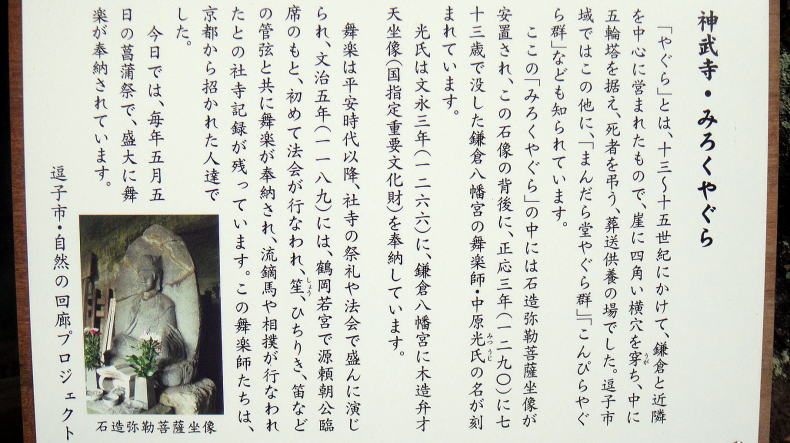 神武寺・みろくやぐら
「やぐら」とは、十三〜十五世紀にかけて、鎌倉と近隣
を中心に営まれたもので、崖に四角い横穴を穿ち、中に
うが
五輪塔を据え、死者を弔う、葬送供養の場でした。逗子市
域ではこの他に、「まんだら堂やぐら群」「こんぴらやぐ
ら群」なども知られています。
ここの「みろくやぐら」の中には石造弥勒菩薩坐像が
安置され、この石像の背後に、正応三年(一二九〇)に七
十三歳で没した鎌倉八幡宮の舞楽師・中原光氏の名が刻
みつうじ
まれています。
光氏は文永三年(一二六六)に、鎌倉八幡宮に木造弁才
天坐像(国指定重要文化財)を奉納しています。
舞楽は平安時代以降、社寺の祭礼や法会で盛んに演じ
られ、文治五年(一一八九)には、鶴岡若宮で源頼朝公臨
席のもと、初めて法会が行なわれ、笙、ひちりき、笛など
しょう
の管弦と共に舞楽が奉納され、流鏑馬や相撲が行なわれ
たとの社寺記録が残っています。この舞楽師たちは、
京都から招かれた人達で
した。
今日では、毎年五月五
日の菖蒲祭で、盛大に舞
楽が奉納されています。
石造弥勒菩薩坐像
逗子市・自然の回廊プロジェクト